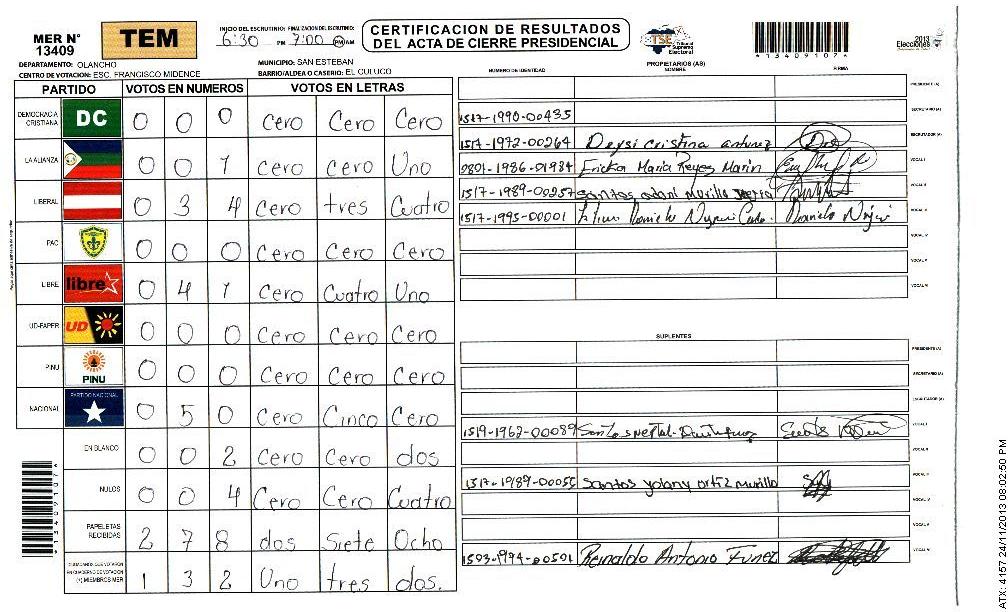 MER N° 13409
TEM
INICIO DEL ESCRUTINIO: 6:30 PM
FINALIZACION DEL ESCRUTINIO: 7:00 PM AM
CERTIFICACION DE RESULTADOS
DEL ACTA DE CIERRE PRESIDENCIAL
TSE Tribunal Supremo Electoral
*13409107*
2013 Elecciones
DEPARTAMENTO: OLANCHO
MUNICIPIO: SAN ESTEBAN
CENTRO DE VOTACION: ESC. FRANCISCO MIDENCE
BARRIO/ALDEA O CASERIO: EL CULUCO
PARTIDO VOTOS EN NUMEROS VOTOS EN LETRAS
DEMOCRACIA CRISTIANA DC 0 0 0 Cero Cero Cero
LA ALIANZA 0 0 1 Cero cero Uno
LIBERAL 0 3 4 Cero tres Cuatro
PAC 0 0 0 Cero Cero Cero
LIBRE libre 0 4 1 Cero Cuatro Uno
UD-FAPER UD 0 0 0 Cero Cero Cero
PINU PINU 0 0 0 Cero Cero Cero
NACIONAL PARTIDO NACIONAL 0 5 0 Cero Cinco Cero
EN BLANCO 0 0 2 Cero Cero dos
NULOS 0 0 4 Cero Cero Cuatro
PAPELETAS RECIBIDAS 2 7 8 dos Siete Ocho
CIUDADANOS QUE VOTARON EN CUADERNO DE VOTACION (+) MIEMBROS MER 1 3 2 Uno tres dos.
*13409107*
PROPIETARIOS (AS)
NUMERO DE IDENTIDAD NOMBRE FIRMA
PRESIDENTE (A)
1517-1990-00435 SECRETARIO (A)
1517-1972-00264 Deysi cristina antunez ESCRUTADOR (A)
0801-1986-01934 Ericka Maria Reyes Marin VOCAL I
1517-1989-00257 Santos adani Murillo VOCAL II
1517-1995-00001 Daniela VOCAL III
VOCAL IV
VOCAL V
VOCAL VI
SUPLENTES
PRESIDENTE (A)
SECRETARIO (A)
ESCRUTADOR (A)
1519-1962-00089 VOCAL I
VOCAL II
1517-1989-00056 Santos yolany ortiz murillo VOCAL III
VOCAL IV
VOCAL V
1503-1994-00501 Reinaldo Antonio Funez VOCAL VI
ATX: 4157 24/11/2013 08:02:50 PM